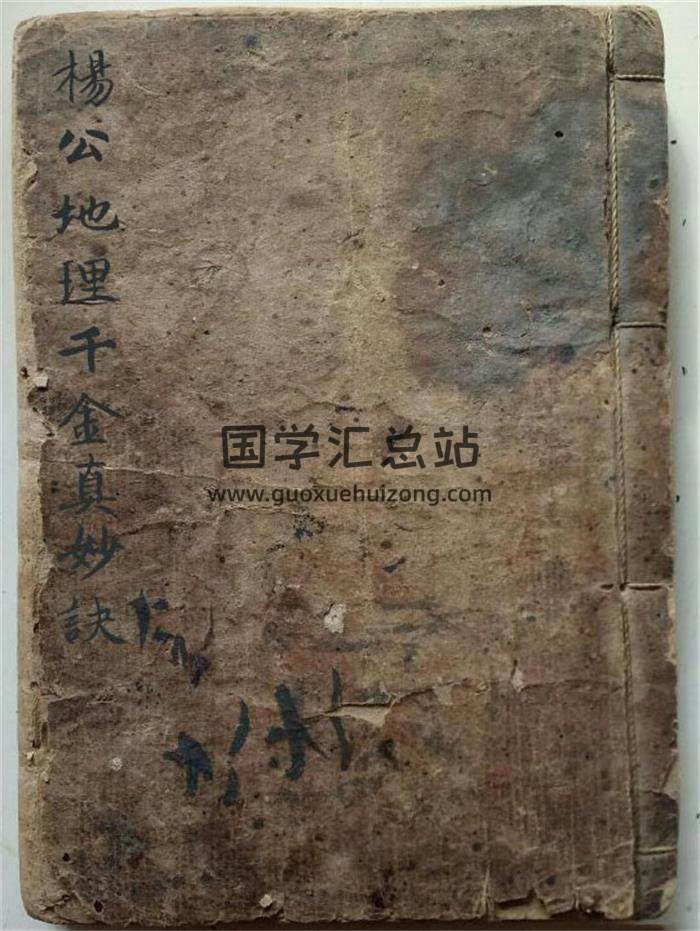 楊公地理千金真妙訣
国学汇总站
www.guoxuehuizong.com